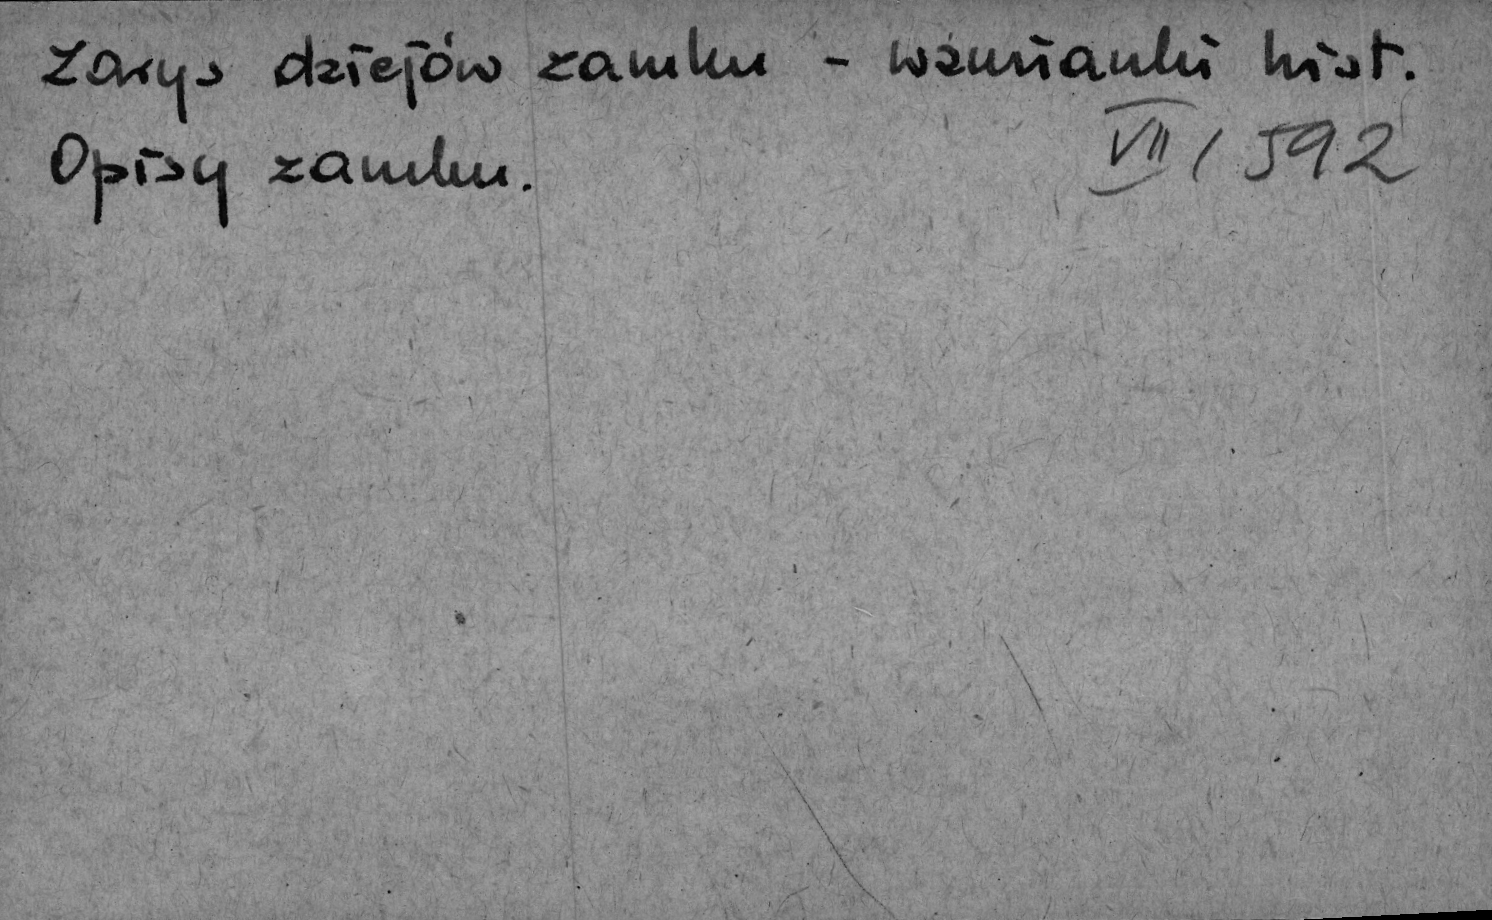 Zarys dziejów zamku - wzmianki hist.
Opisy zamku.
VII / 592